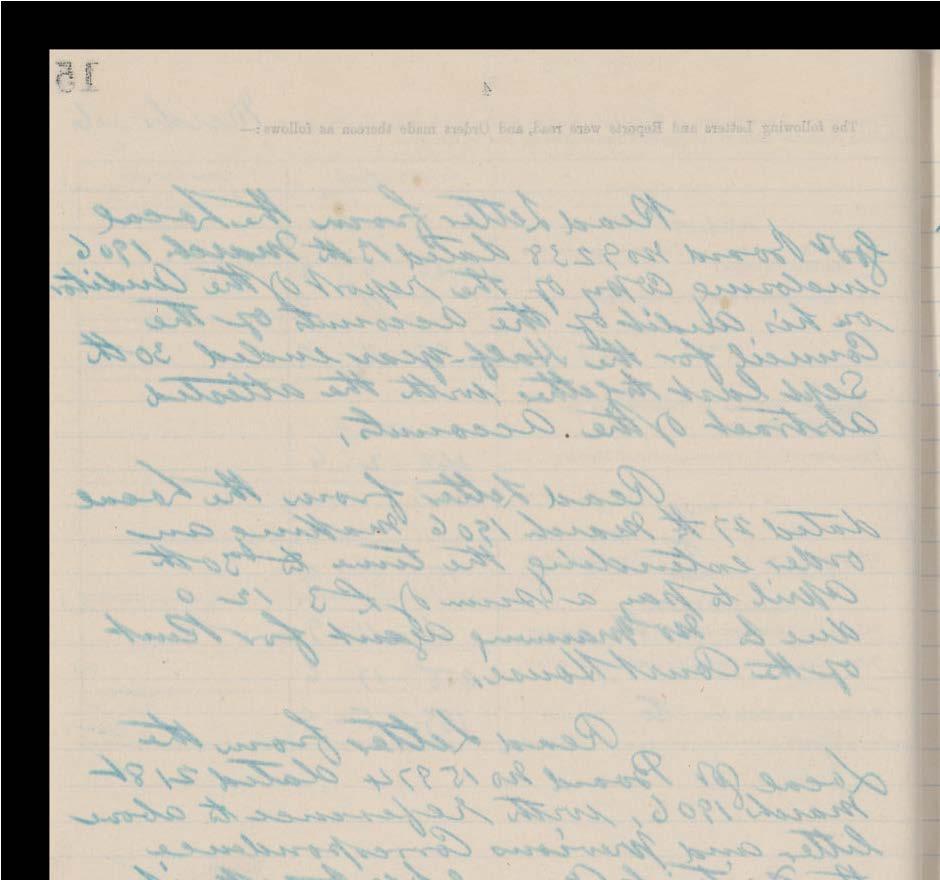 15
4
The following Letters and Reports were read, and Orders made thereon as follows:—
Read Letter from the Local
Govt Board No 9238 dated 15th March 1906
enclosing Copy of the report of the Auditor
on his audit of the accounts of the
Council for the Half-year ended 30th
Sept last together with the attested
abstract of the accounts.
Read Letter from the Local
dated 27th March 1906 making an
order extending the time to 30th
April to pay a sum of £3 12 0
due to Mr Manning Agent for Rent
of the Court House.
Read Letter from the
Local Govt Board No 15974 dated 21st
March 1906, with reference to above
letter and previous Correspondence,